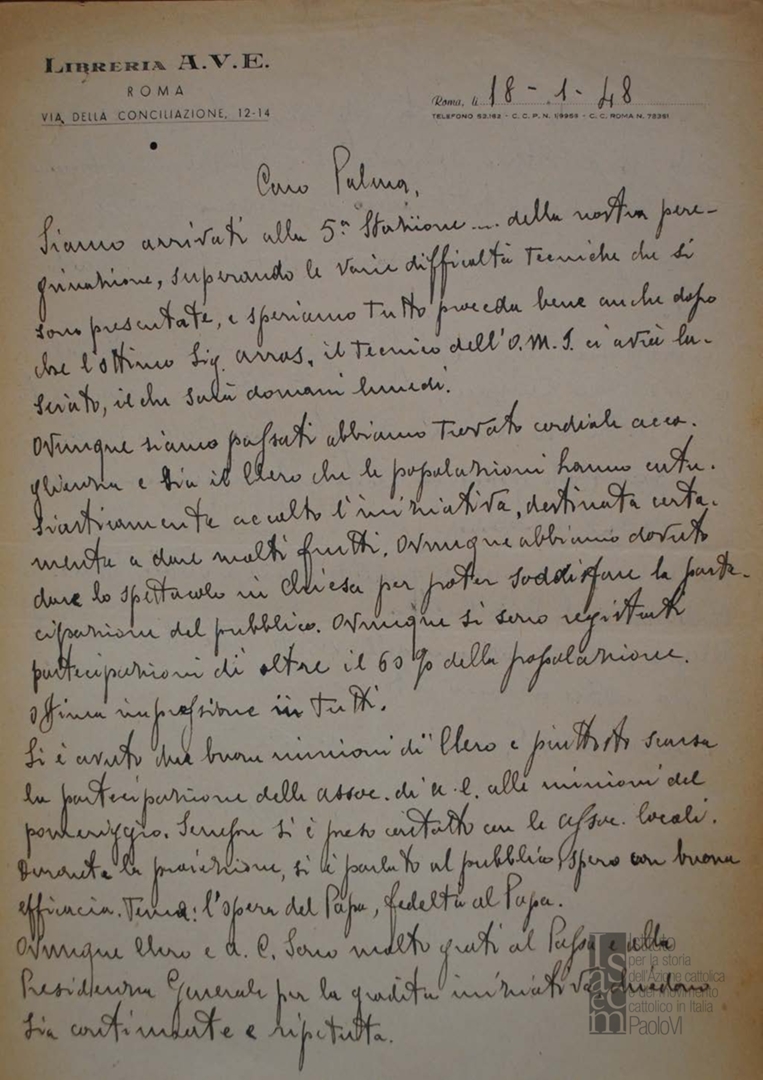 LIBRERIA A.V.E.
ROMA
VIA DELLA CONCILIAZIONE, 12-14
Roma, li 18 - 1 - 48
TELEFONO 53.182 - C. C. P. N. 1/9953 - C. C. ROMA N. 78391
Caro Palma,
Siamo arrivati alla 5ª Stazione .... della nostra pere-
grinazione, superando le varie difficoltà tecniche che si
sono presentate, e speriamo tutto proceda bene anche dopo
che l'ottimo Sig. Arras, il tecnico dell'O.M.I. ci avrà la-
sciato, il che sarà domani lunedì.
Ovunque siamo passati abbiamo trovato cordiale acco-
glienza e sia il Clero che le popolazioni hanno entu-
siasticamente accolto l'iniziativa, destinata certa-
mente a dare molti frutti. Ovunque abbiamo dovuto
dare lo spettacolo in Chiesa per poter soddisfare la parte-
cipazione del pubblico. Ovunque si sono registrati
partecipazioni di oltre il 60 % della popolazione.
Ottima impressione in tutti.
Si è avuto due buone riunioni di Clero e piuttosto scarsa
la partecipazione delle assoc. di a.c. alle riunioni del
pomeriggio. Sempre si è preso contatto con le assoc. locali.
Durante la proiezione, si è parlato al pubblico, spero con buona
efficacia. Tema: l'opera del Papa, fedeltà al Papa.
Ovunque Clero e a. C. sono molto grati al Papa e alla
Presidenza Generale per la gradita iniziativa, chiedono
sia continuata e ripetuta.
Istituto
per la storia
dell'Azione cattolica
e del movimento
cattolico in Italia
PaoloVI